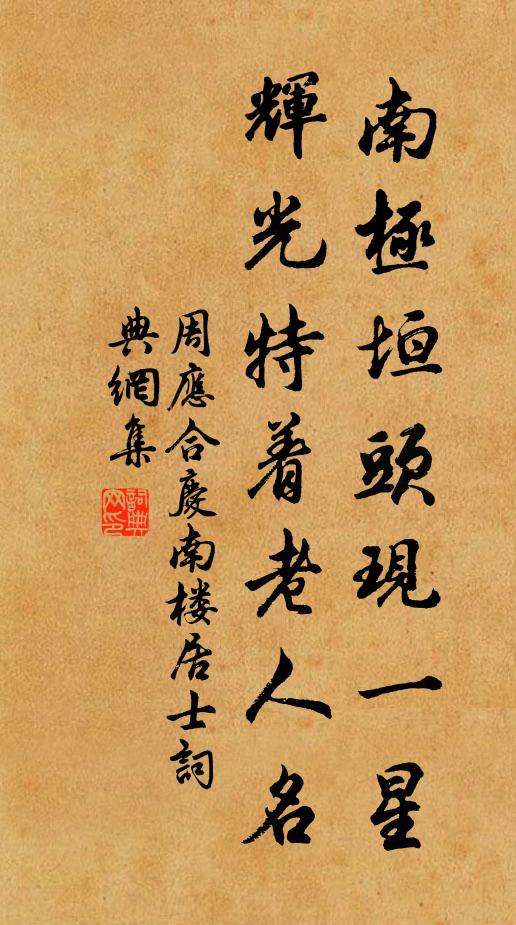 南極垣頭現一星
輝光特着老人名
周應合慶南楼居士詞
典網集
詞典
网印